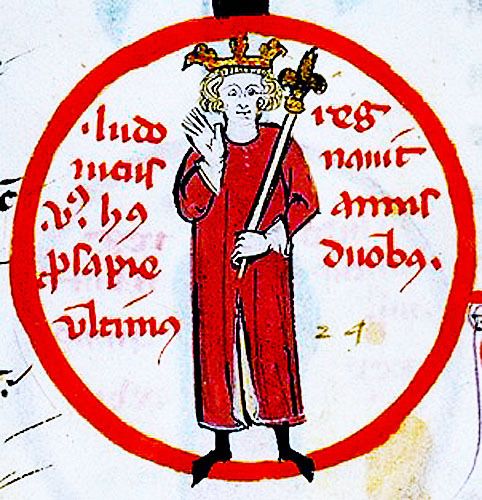 ·ludo
uicus
.vꝰ. hꝰ
ꝓsapie
vltimꝰ
reg
nauit
annis
duobꝫ.
24